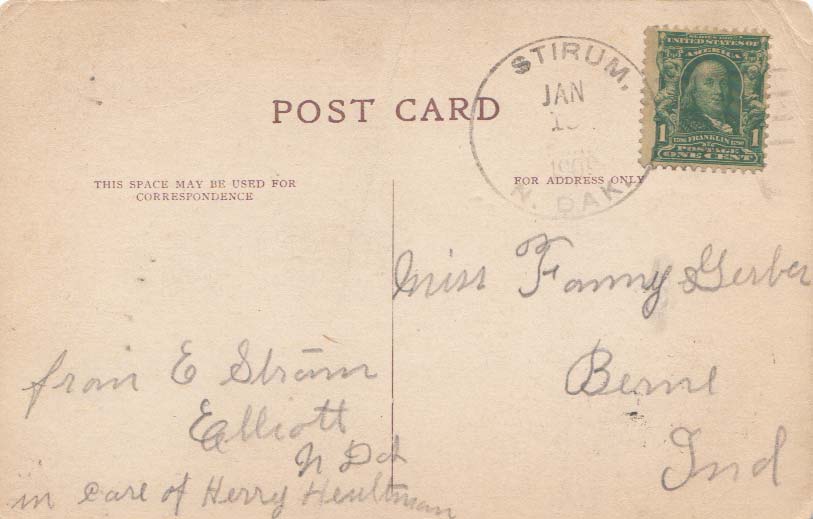 POST CARD
STIRUM,
JAN
N. DAK.
SERIES 1902
UNITED STATES OF
AMERICA
1706 FRANKLIN 1790
1 1
POSTAGE
ONE CENT
THIS SPACE MAY BE USED FOR
CORRESPONDENCE
FOR ADDRESS ONLY
Miss Fanny Gerber
Berne
Ind
from E
Elliott
N Dak
in care of Herry